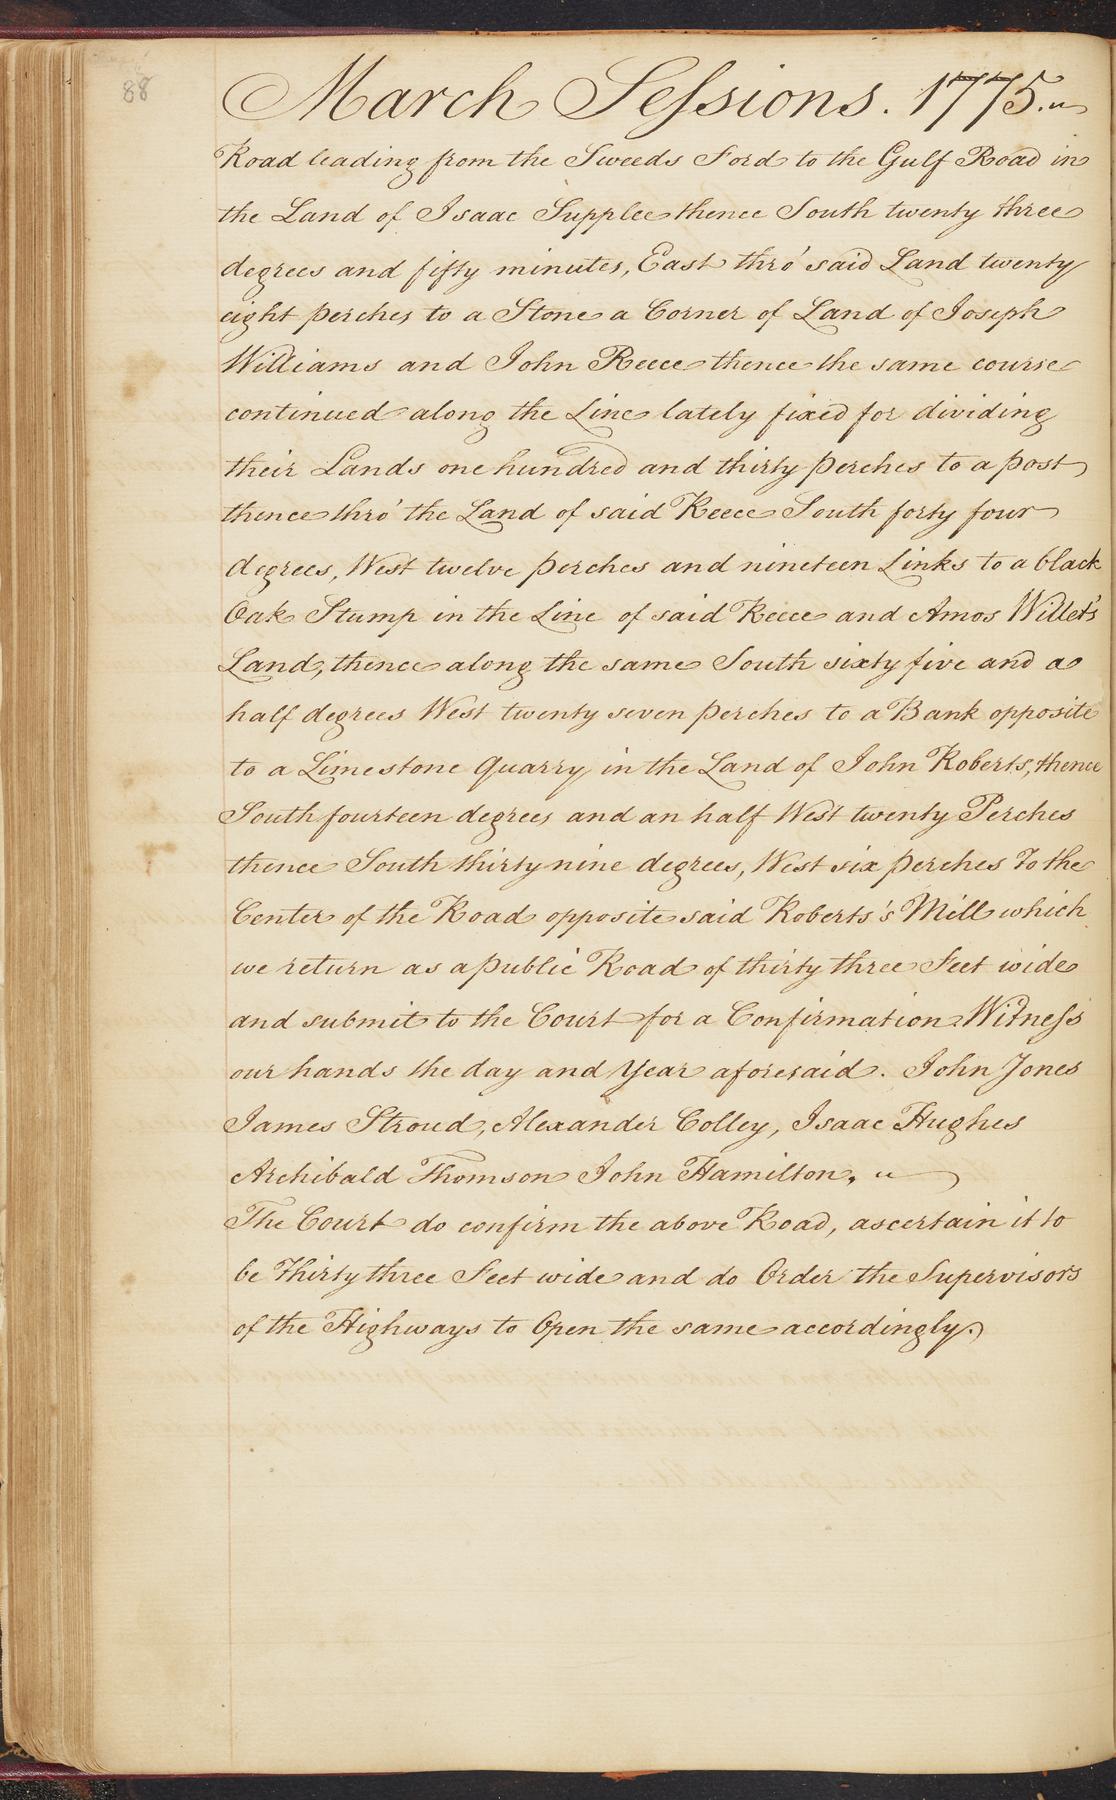 88
March Seſsions. 1775.
Road leading from the Sweeds Ford to the Gulf Road in
the Land of Isaac Supplee thence South twenty three
degrees and fifty minutes, East thro' said Land twenty
eight perches to a Stone a Corner of Land of Joseph
Williams and John Reece thence the same course
continued along the Line lately fixed for dividing
their Lands one hundred and thirty perches to a post
thence thro' the Land of said Reece South forty four
degrees, West twelve perches and nineteen Links to a black
Oak Stump in the Line of said Reece and Amos Willet's
Land, thence along the same South sixty five and a
half degrees West twenty seven perches to a Bank opposite
to a Limestone quarry in the Land of John Roberts, thence
South fourteen degrees and an half West twenty Perches
thence South thirty nine degrees, West six perches To the
Center of the Road opposite said Roberts's Mill which
we return as a public Road of thirty three Feet wide
and submit to the Court for a Confirmation. Witneſs
our hands the day and Year aforesaid. John Jones
James Stroud, Alexander Colley, Isaac Hughes
Archibald Thomson John Hamilton,
The Court do confirm the above Road, ascertain it to
be Thirty three Feet wide and do Order the Supervisors
of the Highways to Open the same accordingly.